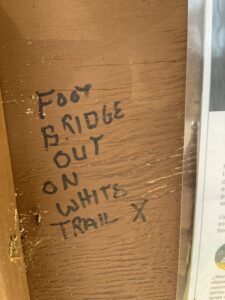 FOOT
BRIDGE
OUT
ON
WHITE
TRAIL X